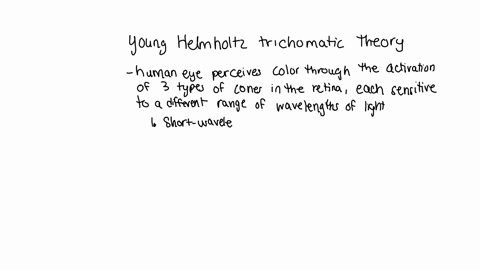 Young Helmholtz trichomatic Theory
- human eye perceives color through the activation
of 3 types of cones in the retina, each sensitive
to a different range of wavelengths of light
↳ Short-wavele